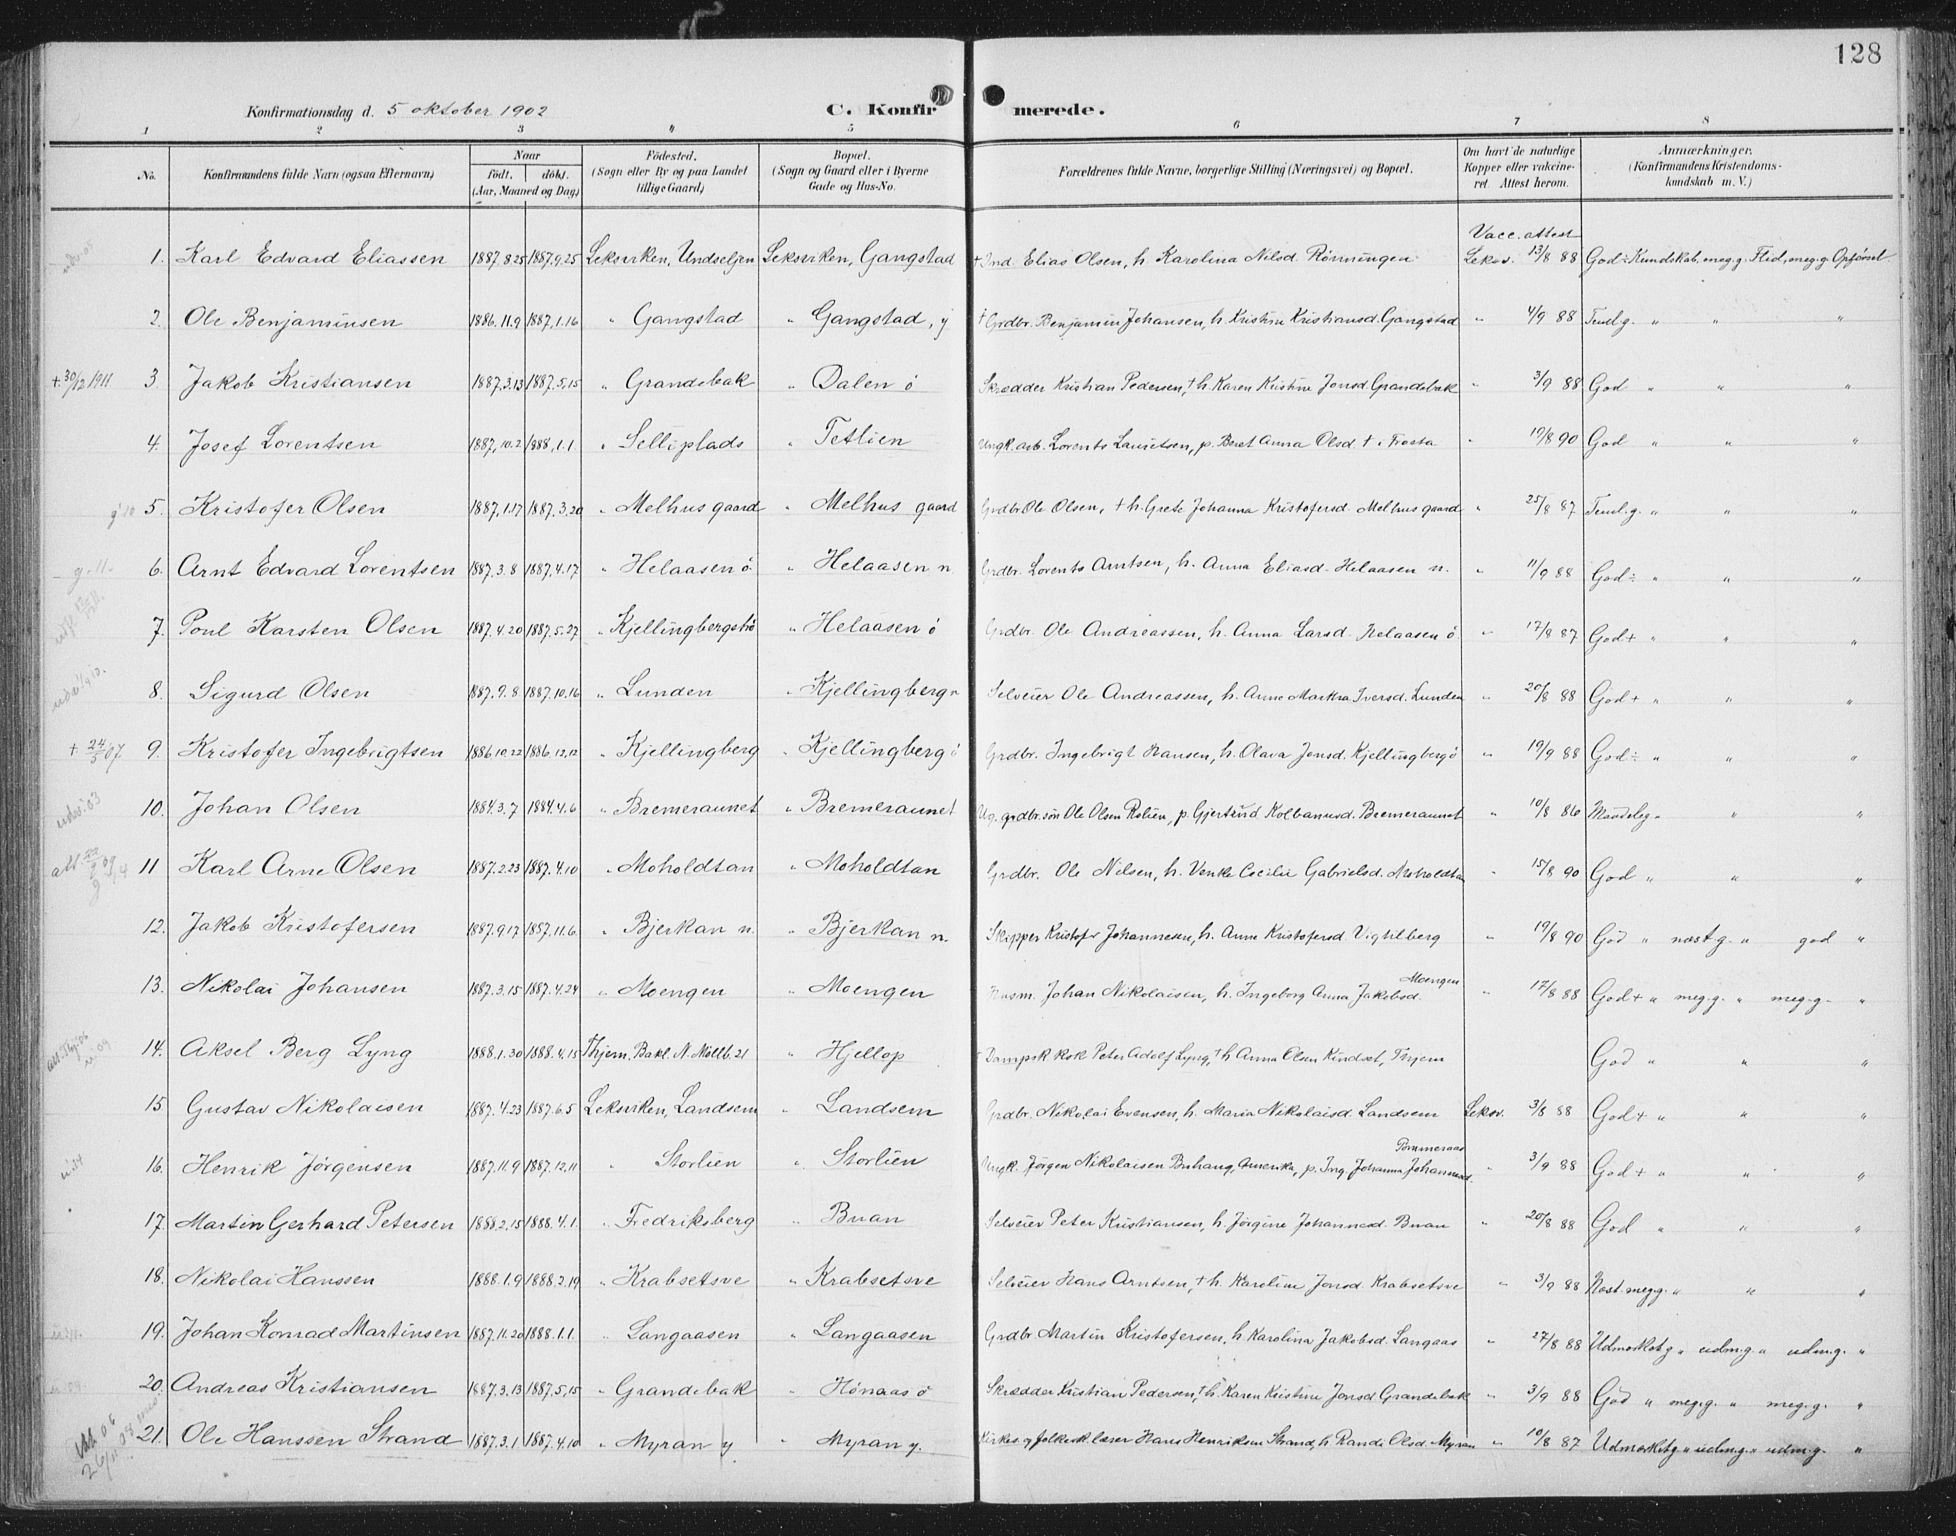 128
Konfirmationsdag d. 5 oktober 1902 C. Konfirmerede.
1 2 3 4 5 6 7 8
No. Konfirmandens fulde Navn (ogsaa Efternavn) Naar født. døbt. (Aar, Maaned og Dag) Fødested. (Sogn eller By og paa Landet tillige Gaard) Bopæl. (Sogn og Gaard eller i Byerne Gade og Hus-No. Forældrenes fulde Navne, borgerlige Stilling (Næringsvei) og Bopæl. Om havt de naturlige Kopper eller vakcineret. Attest herom. Anmærkninger. (Konfirmandens Kristendomskundskab m. V.)
1. Karl Edvard Eliassen 1887.8.25 1887.9.25 Leksviken, Undseljen Leksviken, Gangstad + Ind. Elias Olsen, h. Karolina Nilsd. Rönningen Vacc. attest Leksv. 13/8 88 God÷ Kundskab, meg. g. Flid, meg. g. Opförsel
2. Ole Benjaminsen 1886.11.9 1887.1.16 " Gangstad " Gangstad, y † Grdbr. Benjamin Johansen, h. Kristine Kristiansd. Gangstad " 4/9 88 Teml.g. " " "
+ 30/12 1911 3. Jakob Kristiansen 1887.3.13 1887.5.15 " Grandebak " Dalen ö Skrædder Kristian Pedersen, † h. Karen Kristine Jonsd. Grandebak " 3/9 88 God " " "
4. Josef Lorentsen 1887.10.2 1888.1.1. " Selliplads " Tetlien Ungk. arb. Lorents Lauritsen, p. Beret Anna Olsd. † i Frosta " 19/8 90 God " " "
g'10 5. Kristofer Olsen 1887.1.17 1887.3.20 " Melhus gaard " Melhus gaard Grdbr. Ole Olsen, † h. Grete Johanna Kristofersd. Melhus gaard " 25/8 87 Teml.g. " " "
g. 11. 6. Arnt Edvard Lorentsen 1887.3.8 1887.4.17 " Helaasen ö. " Helaasen n Grdbr. Lorents Arntsen, h. Anna Eliasd. Helaasen n. " 11/9 88 God÷ " " "
7. Poul Karsten Olsen 1887.4.20 1887.5.27 " Kjellingbergströ " Helaasen ö Grdbr. Ole Andreassen, h. Anna Larsd. Helaasen ö. " 17/8 87 God+ " " "
8. Sigurd Olsen 1887.9.8 1887.10.16 " Lunden " Kjellingberg n Selveier Ole Andreassen, h. Anne Martha Iversd. Lunden " 20/8 88 God+ " " "
+ 24/5 07 9. Kristofer Ingebrigtsen 1886.10.22 1886.12.12 " Kjellingberg " Kjellingberg ö Grdbr. Ingebrigt Hansen, h. Olava Jonsd. Kjellingberg ö " 19/9 88 God÷ " " "
udv. 03 10. Johan Olsen 1884.3.7 1884.4.6 " Bremeraunet " Bremeraunet Ug. grdbr.søn Ole Olsen Rolien, p. Gjertrud Kolbanusd. Bremeraunet " 10/8 86 Maadelig " " "
11 Karl Arne Olsen 1887.2.23 1887.4.10 " Moholdtan " Moholdtan Grdbr. Ole Nilsen, h. Venke Cecilie Gabrielsd. Moholdtan " 15/8 90 God " " "
12. Jakob Kristofersen 1887.9.17 1887.11.6. " Bjerkan n. " Bjerkan n. Skipper Kristofer Johannesen, h. Anne Kristofersd. Vigtilberg " 19/8 90 God " næst g. " god "
13. Nikolai Johansen 1887.3.15 1887.4.24 " Moengen " Moengen Husm. Johan Nikolaisen, h. Ingeborg Anna Jakobsd. Moengen " 17/8 88 God+ " meg.g. " meg.g. "
14. Aksel Berg Lyng 1888.1.30 1888.4.15 Thjem, Bakl. N. Möllb. 21 " Hjellop † Dampsk. kok Peter Adolf Lyng, † h. Anna Olsen Kindset, Thjem God " " "
15 Gustav Nikolaisen 1887.4.23 1887.6.5 Leksviken, Landsem " Landsem Grdbr. Nikolai Evensen, h. Maria Nikolaisd. Landsem Leksv. 3/8 88 God+ " " "
16. Henrik Jörgensen 1887.11.9 1887.12.11 " Storlien " Storlien Ungk. Jörgen Nikolaisen Buhaug, Amerika, p. Ing. Johanna Johannesd. Pommeraas " 3/9 88 God+ " " "
17. Martin Gerhard Petersen 1888.2.15 1888.4.1. " Fredriksberg " Buan Selveier Peter Kristiansen, h. Jörgine Johannesd. Buan " 20/8 88 God " " "
18. Nikolai Hanssen 1888.1.9 1888.2.19 " Krabsetsve " Krabsetsve Selveier Hans Arntsen, † h. Karoline Jonsd. Krabsetsve " 3/9 88 Næst meg.g. " " "
19. Johan Konrad Martinsen 1887.11.20 1888.1.1. " Langaasen " Langaasen Grdbr Martin Kristofersen, h. Karolina Jakobsd. Langaas " 27/8 88 Udmærket g " udm.g. " udm.g. "
20. Andreas Kristiansen 1887.3.13 1887.5.15 " Grandebak " Hönaas ö Skrædder Kristian Pedersen, † h. Karen Kristine Jonsd. Grandebak " 3/9 88 God " meg.g. " meg.g. "
21. Ole Hanssen Strand 1887.3.1 1887.4.10 " Myran y " Myran y. Kirkes. og folkesk.lærer Hans Henriksen Strand, h. Randi Olsd. Myran " 10/8 87 Udmærket g " udm.g. " udm.g. "